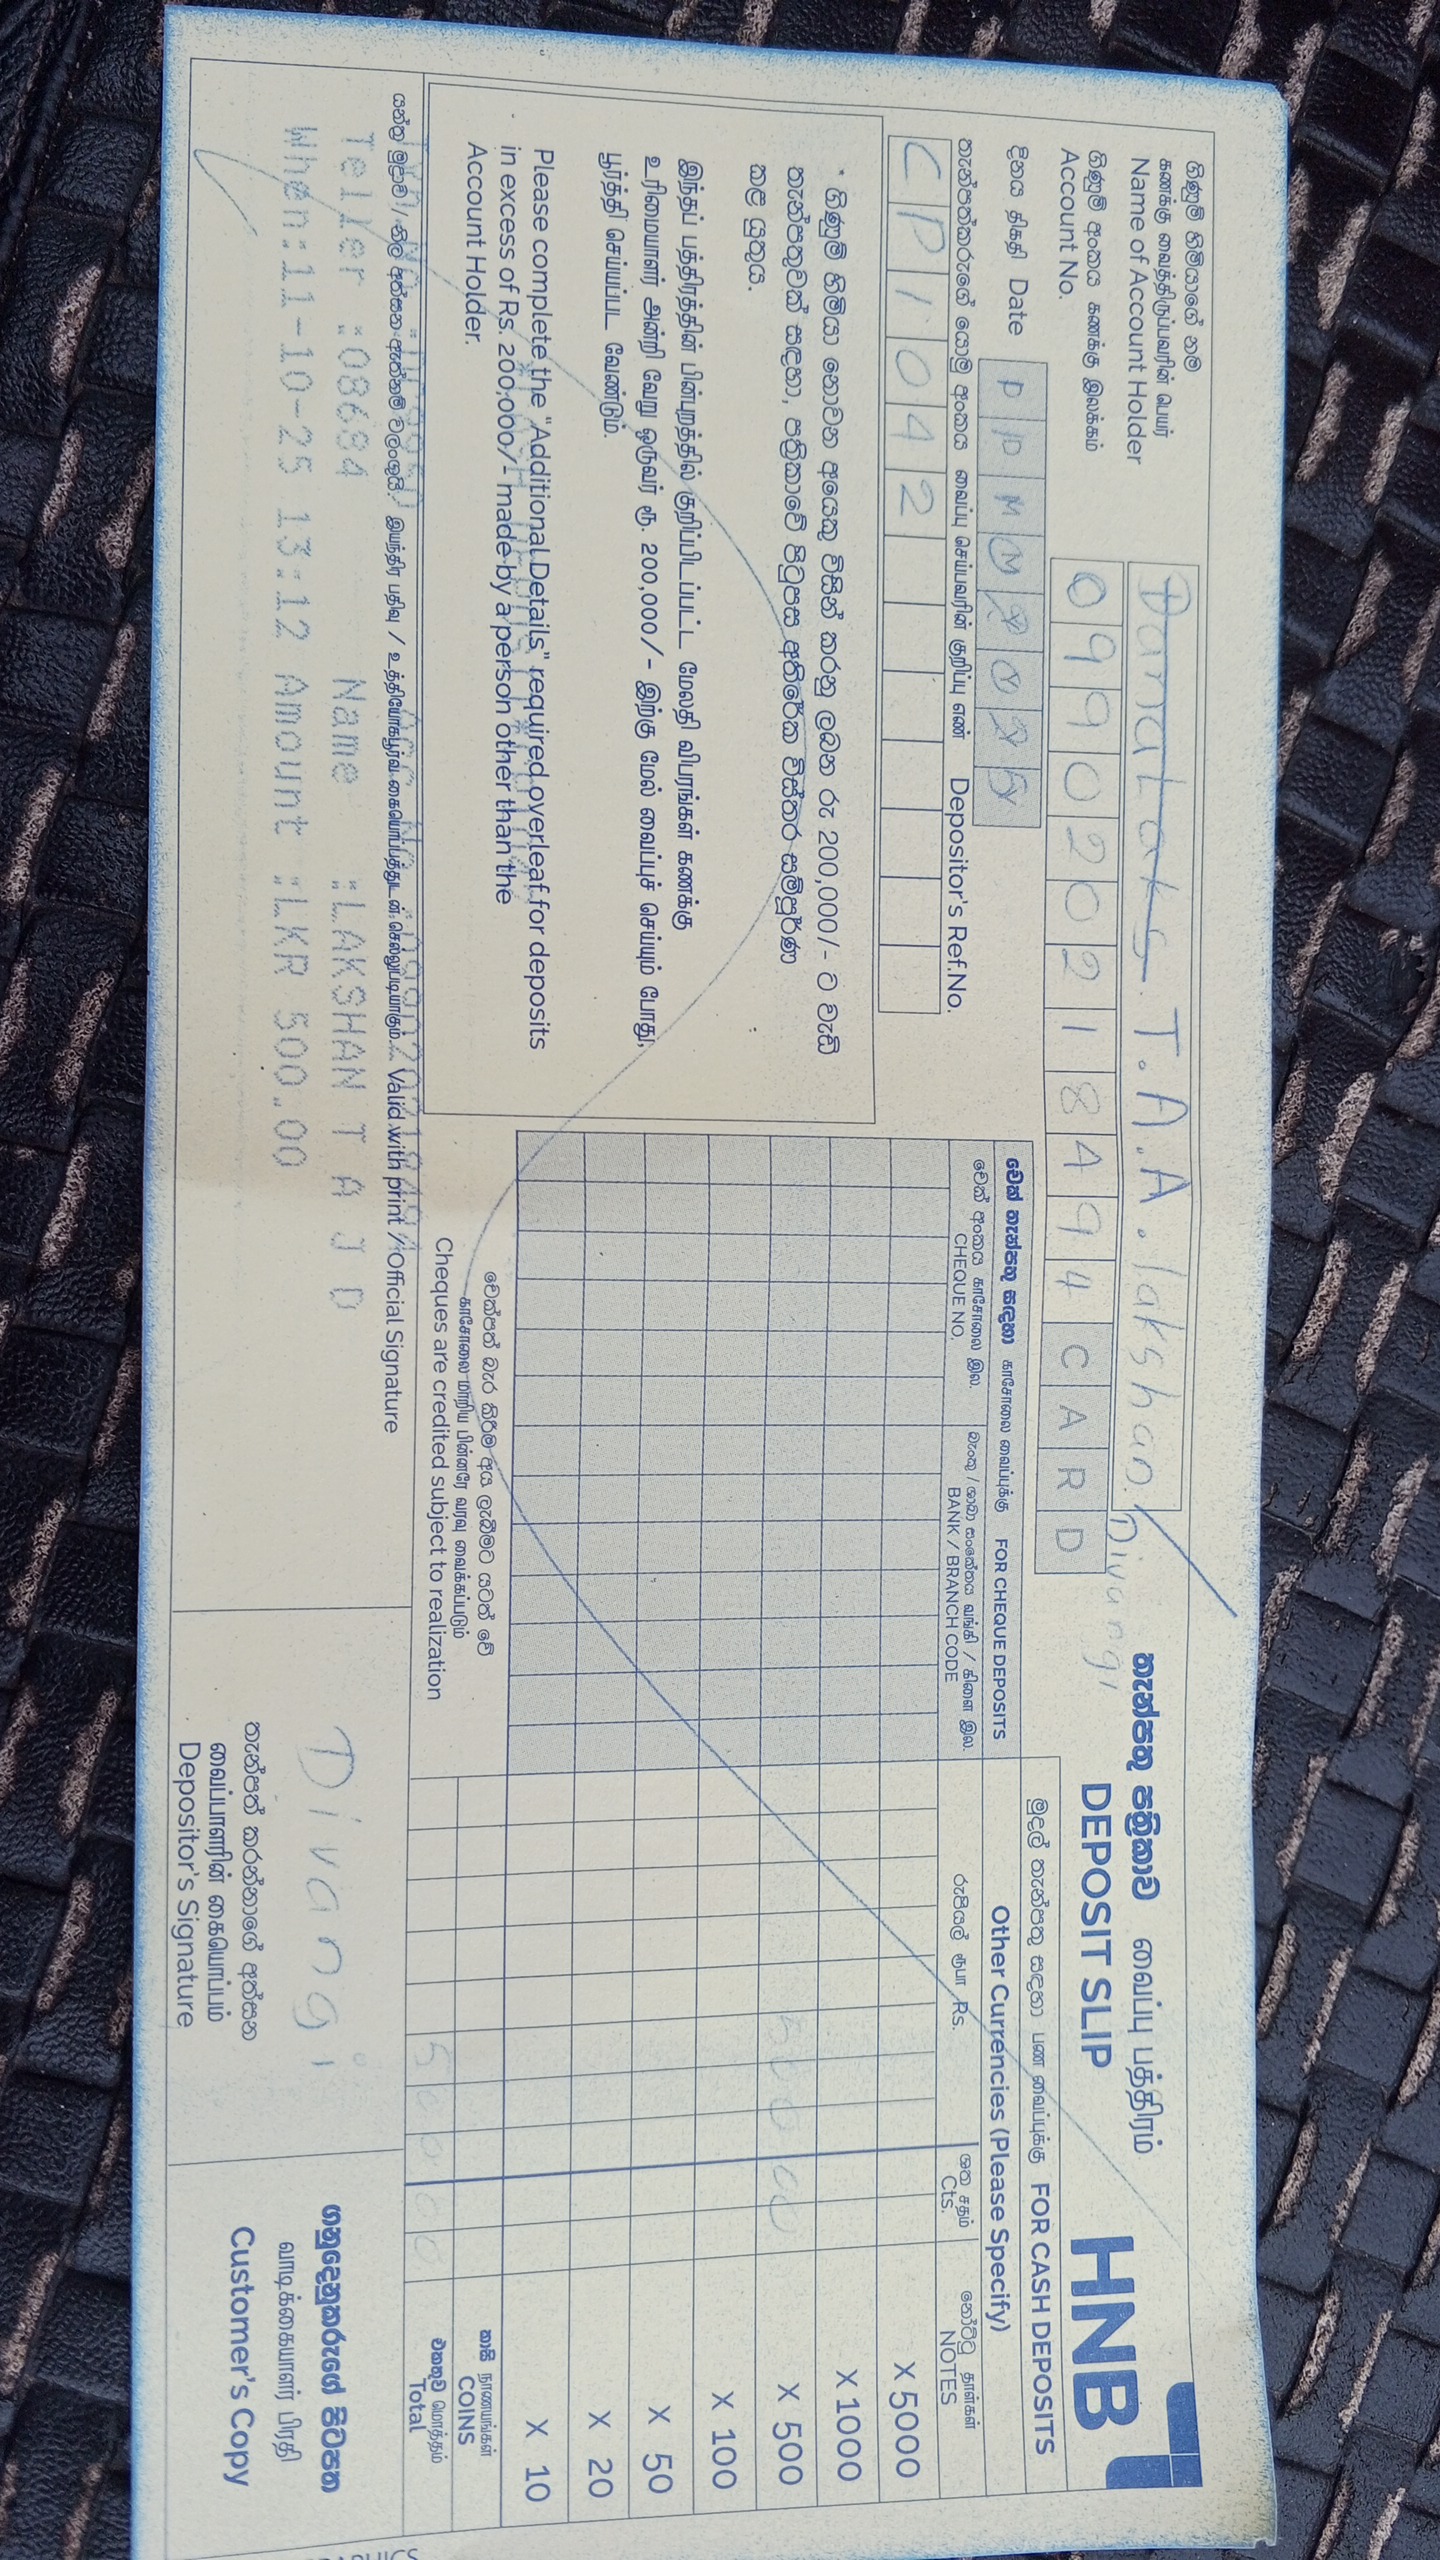 ගිණුම් හිමියාගේ නම
கணக்கு வைத்திருப்பவரின் பெயர்
Name of Account Holder
T.A.A. lakshan. Divangi
ගිණුම් අංකය கணக்கு இலக்கம்
Account No.
0 9 9 0 2 0 2 1 8 4 9 4 C A R D
තැන්පතු පත්‍රිකාව வைப்பு பத்திரம்
DEPOSIT SLIP
HNB
දිනය திகதி Date D D M M Y Y
තැන්පත්කරුගේ යොමු අංකය வைப்பு செய்பவரின் குறிப்பு எண் Depositor's Ref.No.
C P 1 0 4 2
* ගිණුම් හිමියා නොවන අයෙකු විසින් කරනු ලබන රු 200,000/- ට වැඩි
තැන්පතුවක් සඳහා, පත්‍රිකාවේ පිටුපස අතිරේක විස්තර සම්පූර්ණ
කළ යුතුය.
இந்தப் பத்திரத்தின் பின்புறத்தில் குறிப்பிடப்பட்ட மேலதி விபரங்கள் கணக்கு
உரிமையாளர் அன்றி வேறு ஒருவர் ரூ. 200,000/- இற்கு மேல் வைப்புச் செய்யும் போது,
பூர்த்தி செய்யப்பட வேண்டும்.
Please complete the "Additional Details" required overleaf for deposits
in excess of Rs. 200,000/- made by a person other than the
Account Holder.
චෙක් තැන්පතු සඳහා காசோலை வைப்புக்கு FOR CHEQUE DEPOSITS
චෙක් අංකය காசோலை இல.
CHEQUE NO.
බැංකු / ශාඛා සංකේතය வங்கி / கிளை இல.
BANK / BRANCH CODE
චෙක්පත් බැර කිරීම අය ලැබීමට යටත් වේ
காசோலை மாறிய பின்னரே வரவு வைக்கப்படும்
Cheques are credited subject to realization
මුදල් තැන්පතු සඳහා பண வைப்புக்கு FOR CASH DEPOSITS
Other Currencies (Please Specify)
රුපියල් ரூபா Rs.
ශත சதம்
Cts.
නෝට්ටු தாள்கள்
NOTES
X 5000
X 1000
500 00 X 500
X 100
X 50
X 20
X 10
කාසි நாணயங்கள்
COINS
500 00
එකතුව மொத்தம்
Total
යන්ත්‍ර මුද්‍රාව / නිල අත්සන ඇත්නම් වලංගුයි. இயந்திர பதிவு / உத்தியோகபூர்வ கையொப்பத்துடன் செல்லுபடியாகும். Valid with print / Official Signature
Teller :08684 Name :LAKSHAN T A J D
When:11-10-25 13:12 Amount :LKR 500.00
Divangi
තැන්පත් කරන්නාගේ අත්සන
வைப்பாளரின் கையொப்பம்
Depositor's Signature
ගනුදෙනුකරුගේ පිටපත
வாடிக்கையாளர் பிரதி
Customer's Copy